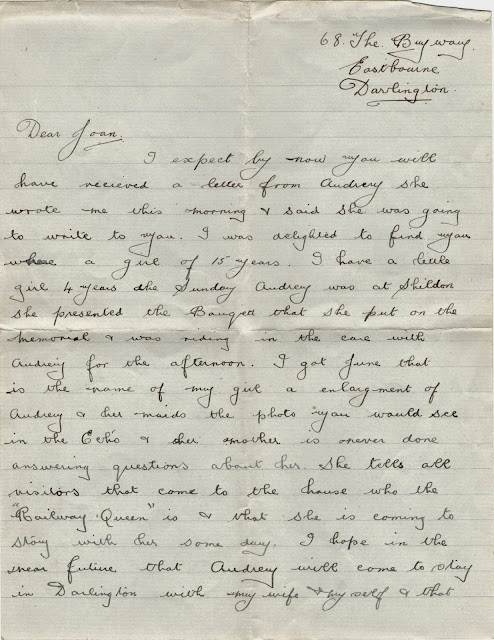 68. The Byway.
Eastbourne
Darlington.
Dear Joan.
I expect by now you will
have recieved a letter from Audrey she
wrote me this morning & said she was going
to write to you. I was delighted to find you
where a girl of 15 years. I have a little
girl 4 years the Sunday Audrey was at Shildon
she presented the Bouquet that she put on the
memorial & was riding in the care with
Audrey for the afternoon. I got June that
is the name of my girl a enlargment of
Audrey & her maids the photo you would see
in the Echo & her mother is never done
answering questions about her. She tells all
visitors that come to the house who the
"Railway Queen" is & that she is coming to
stay with her some day. I hope in the
near future that Audrey will come to stay
in Darlington with my wife & myself & that